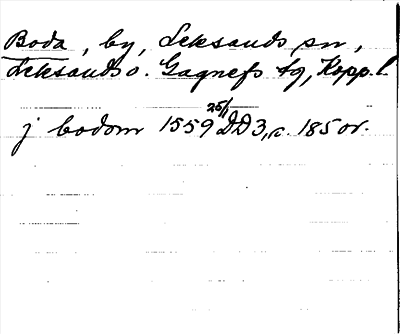 Boda, by, Leksands sn,
Leksands o. Gagnefs tg, Kopp. l.
j bodom 1559 25/1 DD 3, c. 185 or.